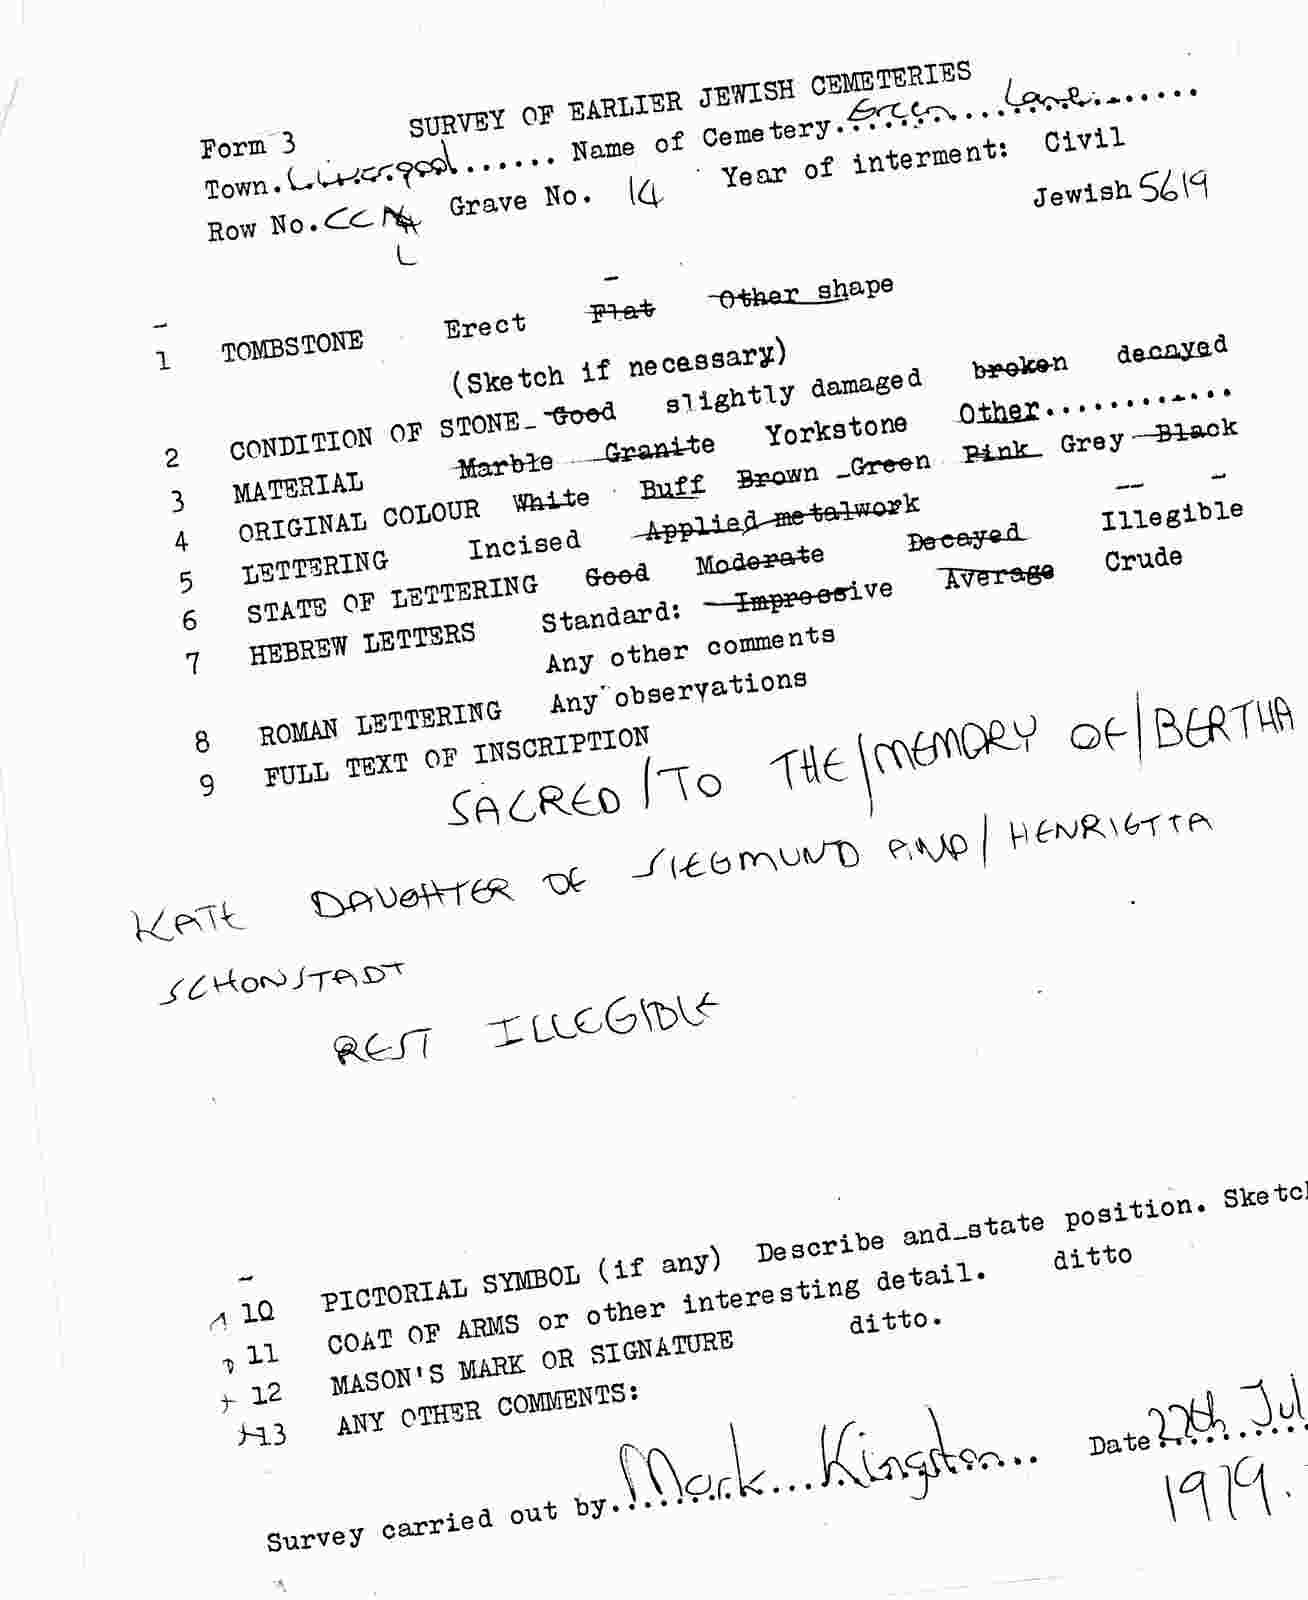 SURVEY OF EARLIER JEWISH CEMETERIES
Form 3
Town. Liverpool...... Name of Cemetery. Green Lane.......
Row No. CC L Grave No. 14 Year of interment: Civil
Jewish 5619
1 TOMBSTONE Erect Flat Other shape
(Sketch if necessary)
2 CONDITION OF STONE Good slightly damaged broken decayed
3 MATERIAL Marble Granite Yorkstone Other............
4 ORIGINAL COLOUR White Buff Brown Green Pink Grey Black
5 LETTERING Incised Applied metalwork
6 STATE OF LETTERING Good Moderate Decayed Illegible
7 HEBREW LETTERS Standard: Impressive Average Crude
Any other comments
8 ROMAN LETTERING Any observations
9 FULL TEXT OF INSCRIPTION
SACRED/TO THE/MEMORY OF/BERTHA
KATE DAUGHTER OF SIEGMUND AND/HENRIETTA
SCHONSTADT
REST ILLEGIBLE
10 PICTORIAL SYMBOL (if any) Describe and state position. Sketch
11 COAT OF ARMS or other interesting detail. ditto
12 MASON'S MARK OR SIGNATURE ditto.
13 ANY OTHER COMMENTS:
Survey carried out by Mark Kingston Date 22th Jul
1979.